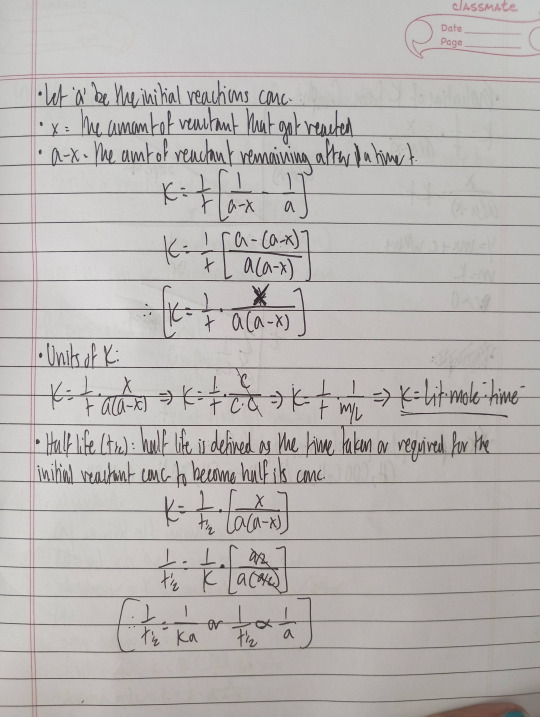 classmate
Date
Page
• Let 'a' be the initial reactions conc.
• x = the amount of reactant that got reacted
• a-x = the amt of reactant remaining after time t.
K = 1/t [1/(a-x) - 1/a]
K = 1/t [(a-(a-x))/(a(a-x))]
∴ [K = 1/t · x/(a(a-x))]
• Units of K:
K = 1/t · x/(a(a-x)) ⇒ K = 1/t · c/(c·c) ⇒ K = 1/t · 1/(m/L) ⇒ K = lit·mole⁻·time⁻
• Half life (t½): half life is defined as the time taken or required for the
initial reactant conc to become half its conc.
K = 1/t½ · [x/(a(a-x))]
1/t½ = 1/K · [(a/2)/(a(a/2))]
[∴ 1/t½ = 1/Ka or 1/t½ ∝ 1/a]